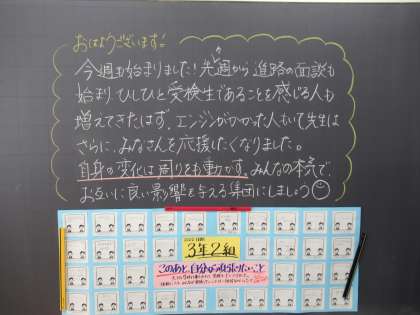 おはようございます!
今週も始まりました!先週から進路の面談も
始まり、ひしひと受検生であることを感じる人も
増えてきたはず。エンジンがかかった人もいて先生は
さらに、みなさんを応援したくなりました。
自身の変化は周りをも動かす。みんなの本気で、
お互いに良い影響を与える集団にしましょう
3年2組
このあと、自分が頑張りたいこと